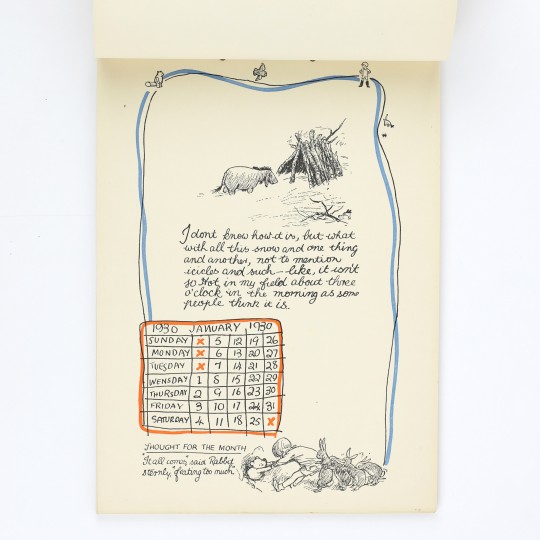 I dont know how it is, but what
with all this snow and one thing
and another, not to mention
icicles and such-like, it isn't
so Hot in my field about three
o'clock in the morning as some
people think it is.
1930 JANUARY 1930
SUNDAY x 5 12 19 26
MONDAY x 6 13 20 27
TUESDAY x 7 14 21 28
WENSDAY 1 8 15 22 29
THURSDAY 2 9 16 23 30
FRIDAY 3 10 17 24 31
SATURDAY 4 11 18 25 x
THOUGHT FOR THE MONTH
"It all comes," said Rabbit
sternly, "of eating too much"